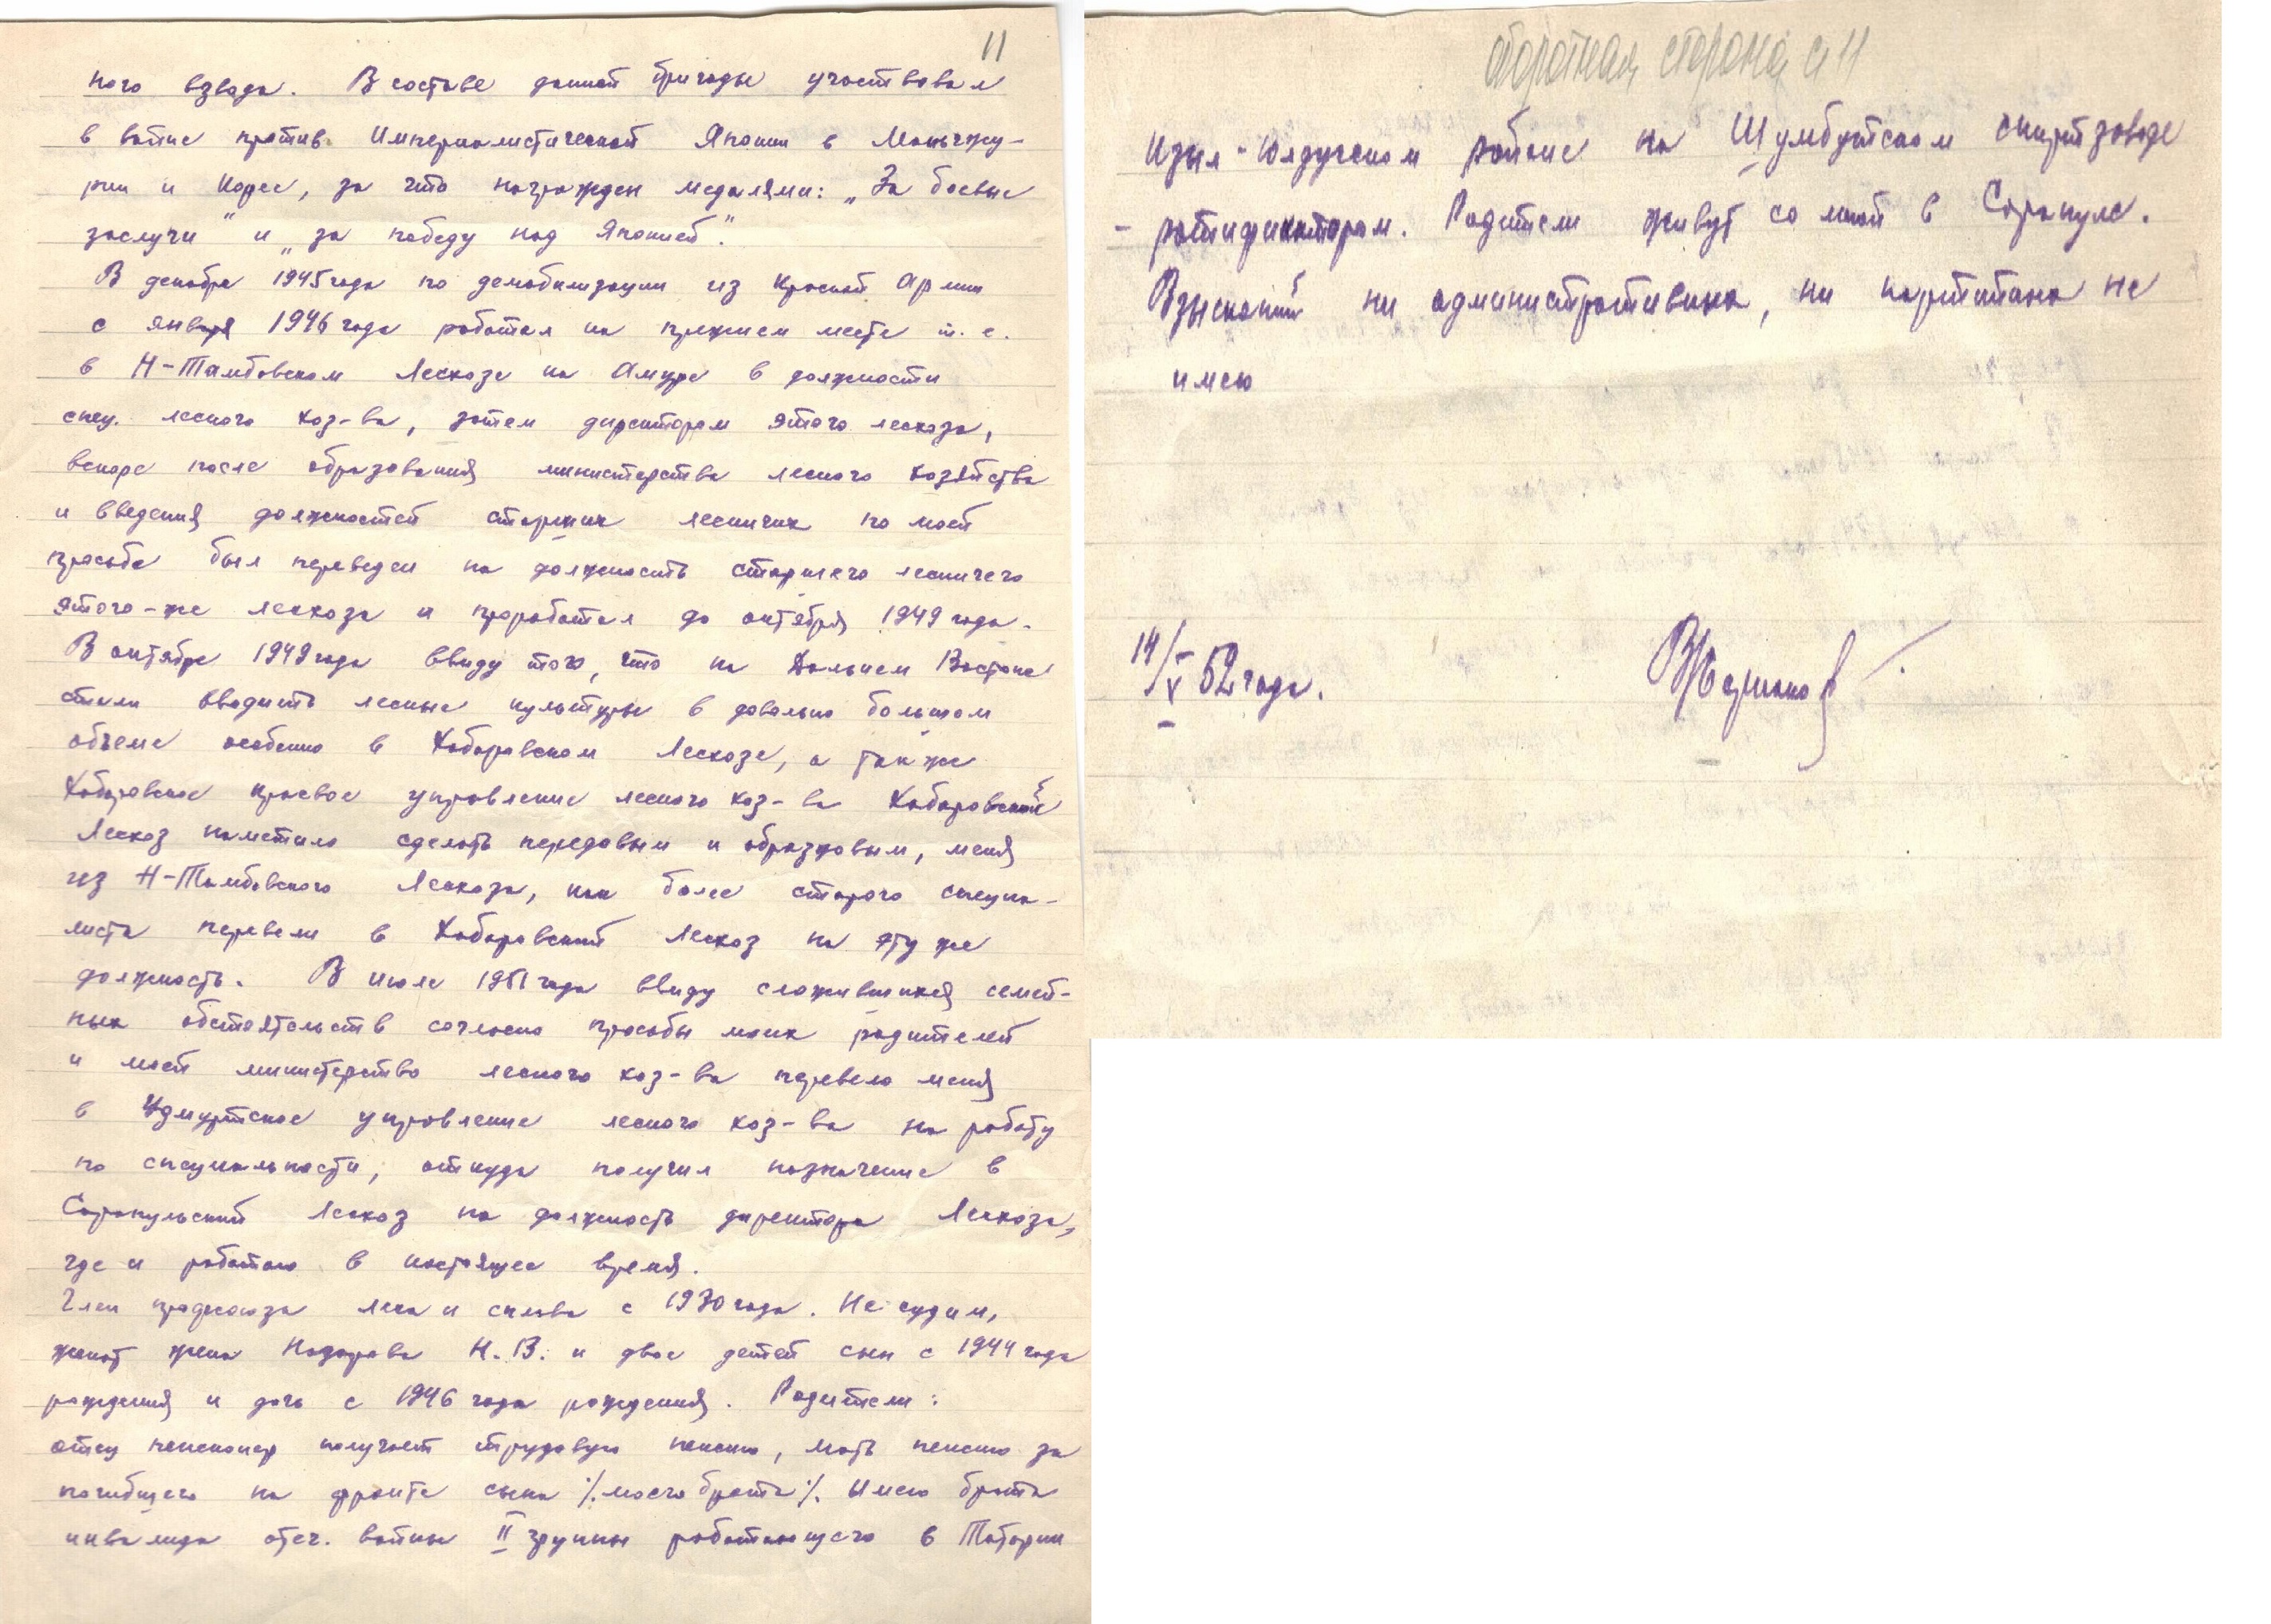 11
ного взвода. В составе данной бригады участвовал
в войне против Империалистической Японии в Маньчжу-
рии и Корее, за что награжден медалями: „За боевые
заслуги" и „за победу над Японией".
В декабре 1945 года по демобилизации из Красной Армии
с января 1946 года работал на прежнем месте т. е.
в Н-Тамбовском Лесхозе на Амуре в должности
спец. лесного хоз-ва, затем директором этого лесхоза,
вскоре после образования министерства лесного хозяйства
и введения должностей старших лесничих по моей
просьбе был переведен на должность старшего лесничего
этого-же лесхоза и проработал до октября 1949 года.
В октябре 1949 года ввиду того, что на Дальнем Востоке
стали вводить лесные культуры в довольно большом
объеме особенно в Хабаровском Лесхозе, а также
Хабаровское краевое управление лесного хоз-ва Хабаровский
Лесхоз наметило сделать передовым и образцовым, меня
из Н-Тамбовского Лесхоза, как более старого специа-
листа перевели в Хабаровский Лесхоз на эту же
должность. В июле 1951 года ввиду сложившихся семей-
ных обстоятельств согласно просьбы моих родителей
и моей министерство лесного хоз-ва перевело меня
в Удмуртское управление лесного хоз-ва на работу
по специальности, откуда получил назначение в
Сарапульский Лесхоз на должность директора Лесхоза,
где и работаю в настоящее время.
Член профсоюза леса и сплава с 1930 года. Не судим,
женат жена Назарова Н. В. и двое детей сын с 1944 года
рождения и дочь с 1946 года рождения. Родители:
отец пенсионер получает трудовую пенсию, мать пенсию за
погибшего на фронте сына ⁒моего брата⁒. Имею брата
инвалида отеч. войны II группы работающего в Татарии
оборотная сторона с 11
Кзыл-Юлдузском районе на Шумбутском спиртзаводе
- ратификатором. Родители живут со мной в Сарапуле.
Взысканий ни административных, ни партийных не
имею
14/V 52 года.